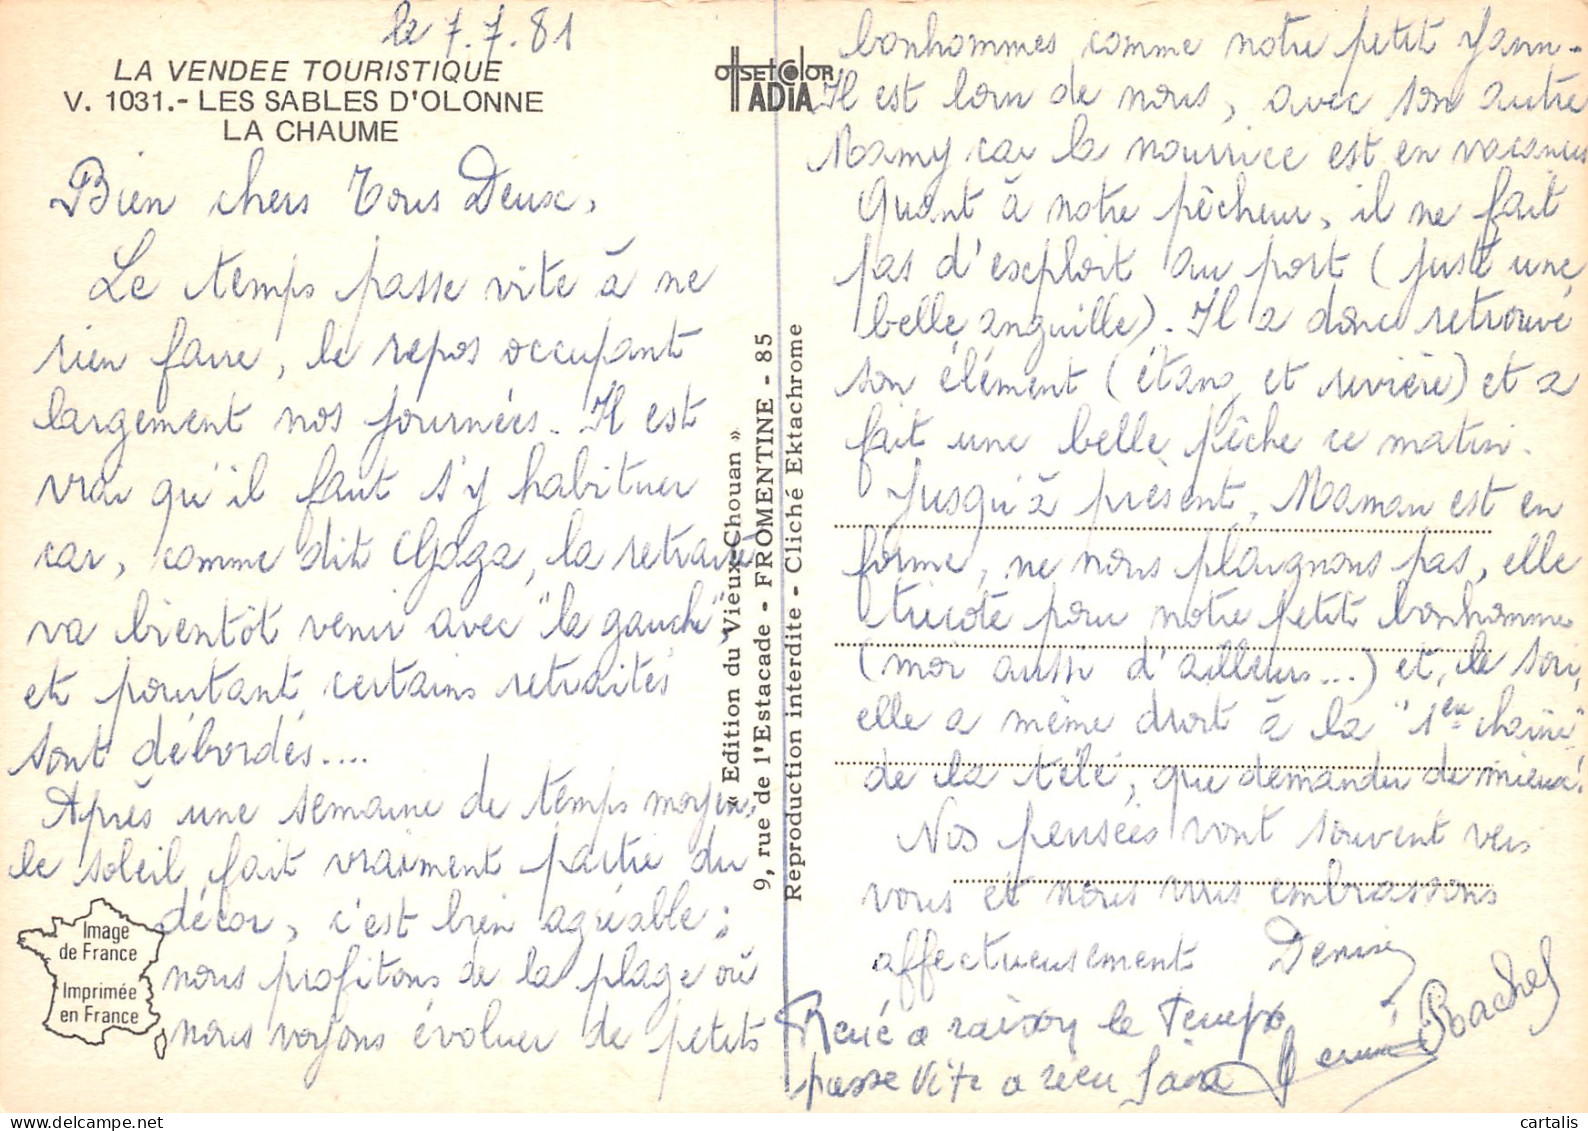 le 7.7.81
LA VENDEE TOURISTIQUE
V. 1031.- LES SABLES D'OLONNE
LA CHAUME
Bien chers Tous Deux,
Le temps passe vite à ne
rien faire, le repos occupant
largement nos journées. Il est
vrai qu'il faut s'y habituer
car, comme dit Gaga, la retraite
va bientôt venir avec "la gauche"
et pourtant certains retraités
sont débordés....
Après une semaine de temps moyen,
le soleil fait vraiment partie du
décor, c'est bien agréable ;
nous profitons de la plage où
nous voyons évoluer de petits
Image
de France
Imprimée
en France
OFFSET COLOR
ADIA
« Edition du Vieux Chouan »
9, rue de l'Estacade - FROMENTINE - 85
Reproduction interdite - Cliché Ektachrome
bonhommes comme notre petit Yann.
Il est loin de nous, avec son autre
Mamy car la nourrice est en vacances
Quant à notre pêcheur, il ne fait
pas d'exploit au port (juste une
belle anguille). Il a donc retrouvé
son élément (étang et rivière) et a
fait une belle pêche ce matin.
Jusqu'à présent, Maman est en
forme, ne nous plaignons pas, elle
tricote pour notre petit bonhomme
(moi aussi d'ailleurs...) et, le soir,
elle a même droit à la "1ère chaîne"
de la télé, que demander de mieux!
Nos pensées vont souvent vers
vous et nous vous embrassons
affectueusement Denise
Rachel
René a raison le temps
passe vite a rien faire
cartalis